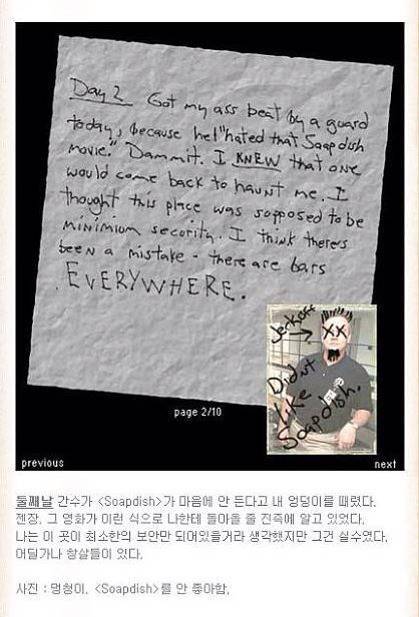 Day 2 Got my ass beat by a guard
today, because he "hated that Soapdish
movie." Dammit. I KNEW that one
would come back to haunt me. I
thought this place was sopposed to be
minimium security. I think theres
been a mistake - there are bars
EVERYWHERE.
Jerkoff
XX
Didnt
Like
Soapdish.
page 2/10
previous
next
둘째날 간수가 <Soapdish>가 마음에 안 든다고 내 엉덩이를 때렸다.
젠장. 그 영화가 이런 식으로 나한테 돌아올 줄 진즉에 알고 있었다.
나는 이 곳이 최소한의 보안만 되어있을거라 생각했지만 그건 실수였다.
어딜가나 창살들이 있다.
사진 : 멍청이. <Soapdish>를 안 좋아함.